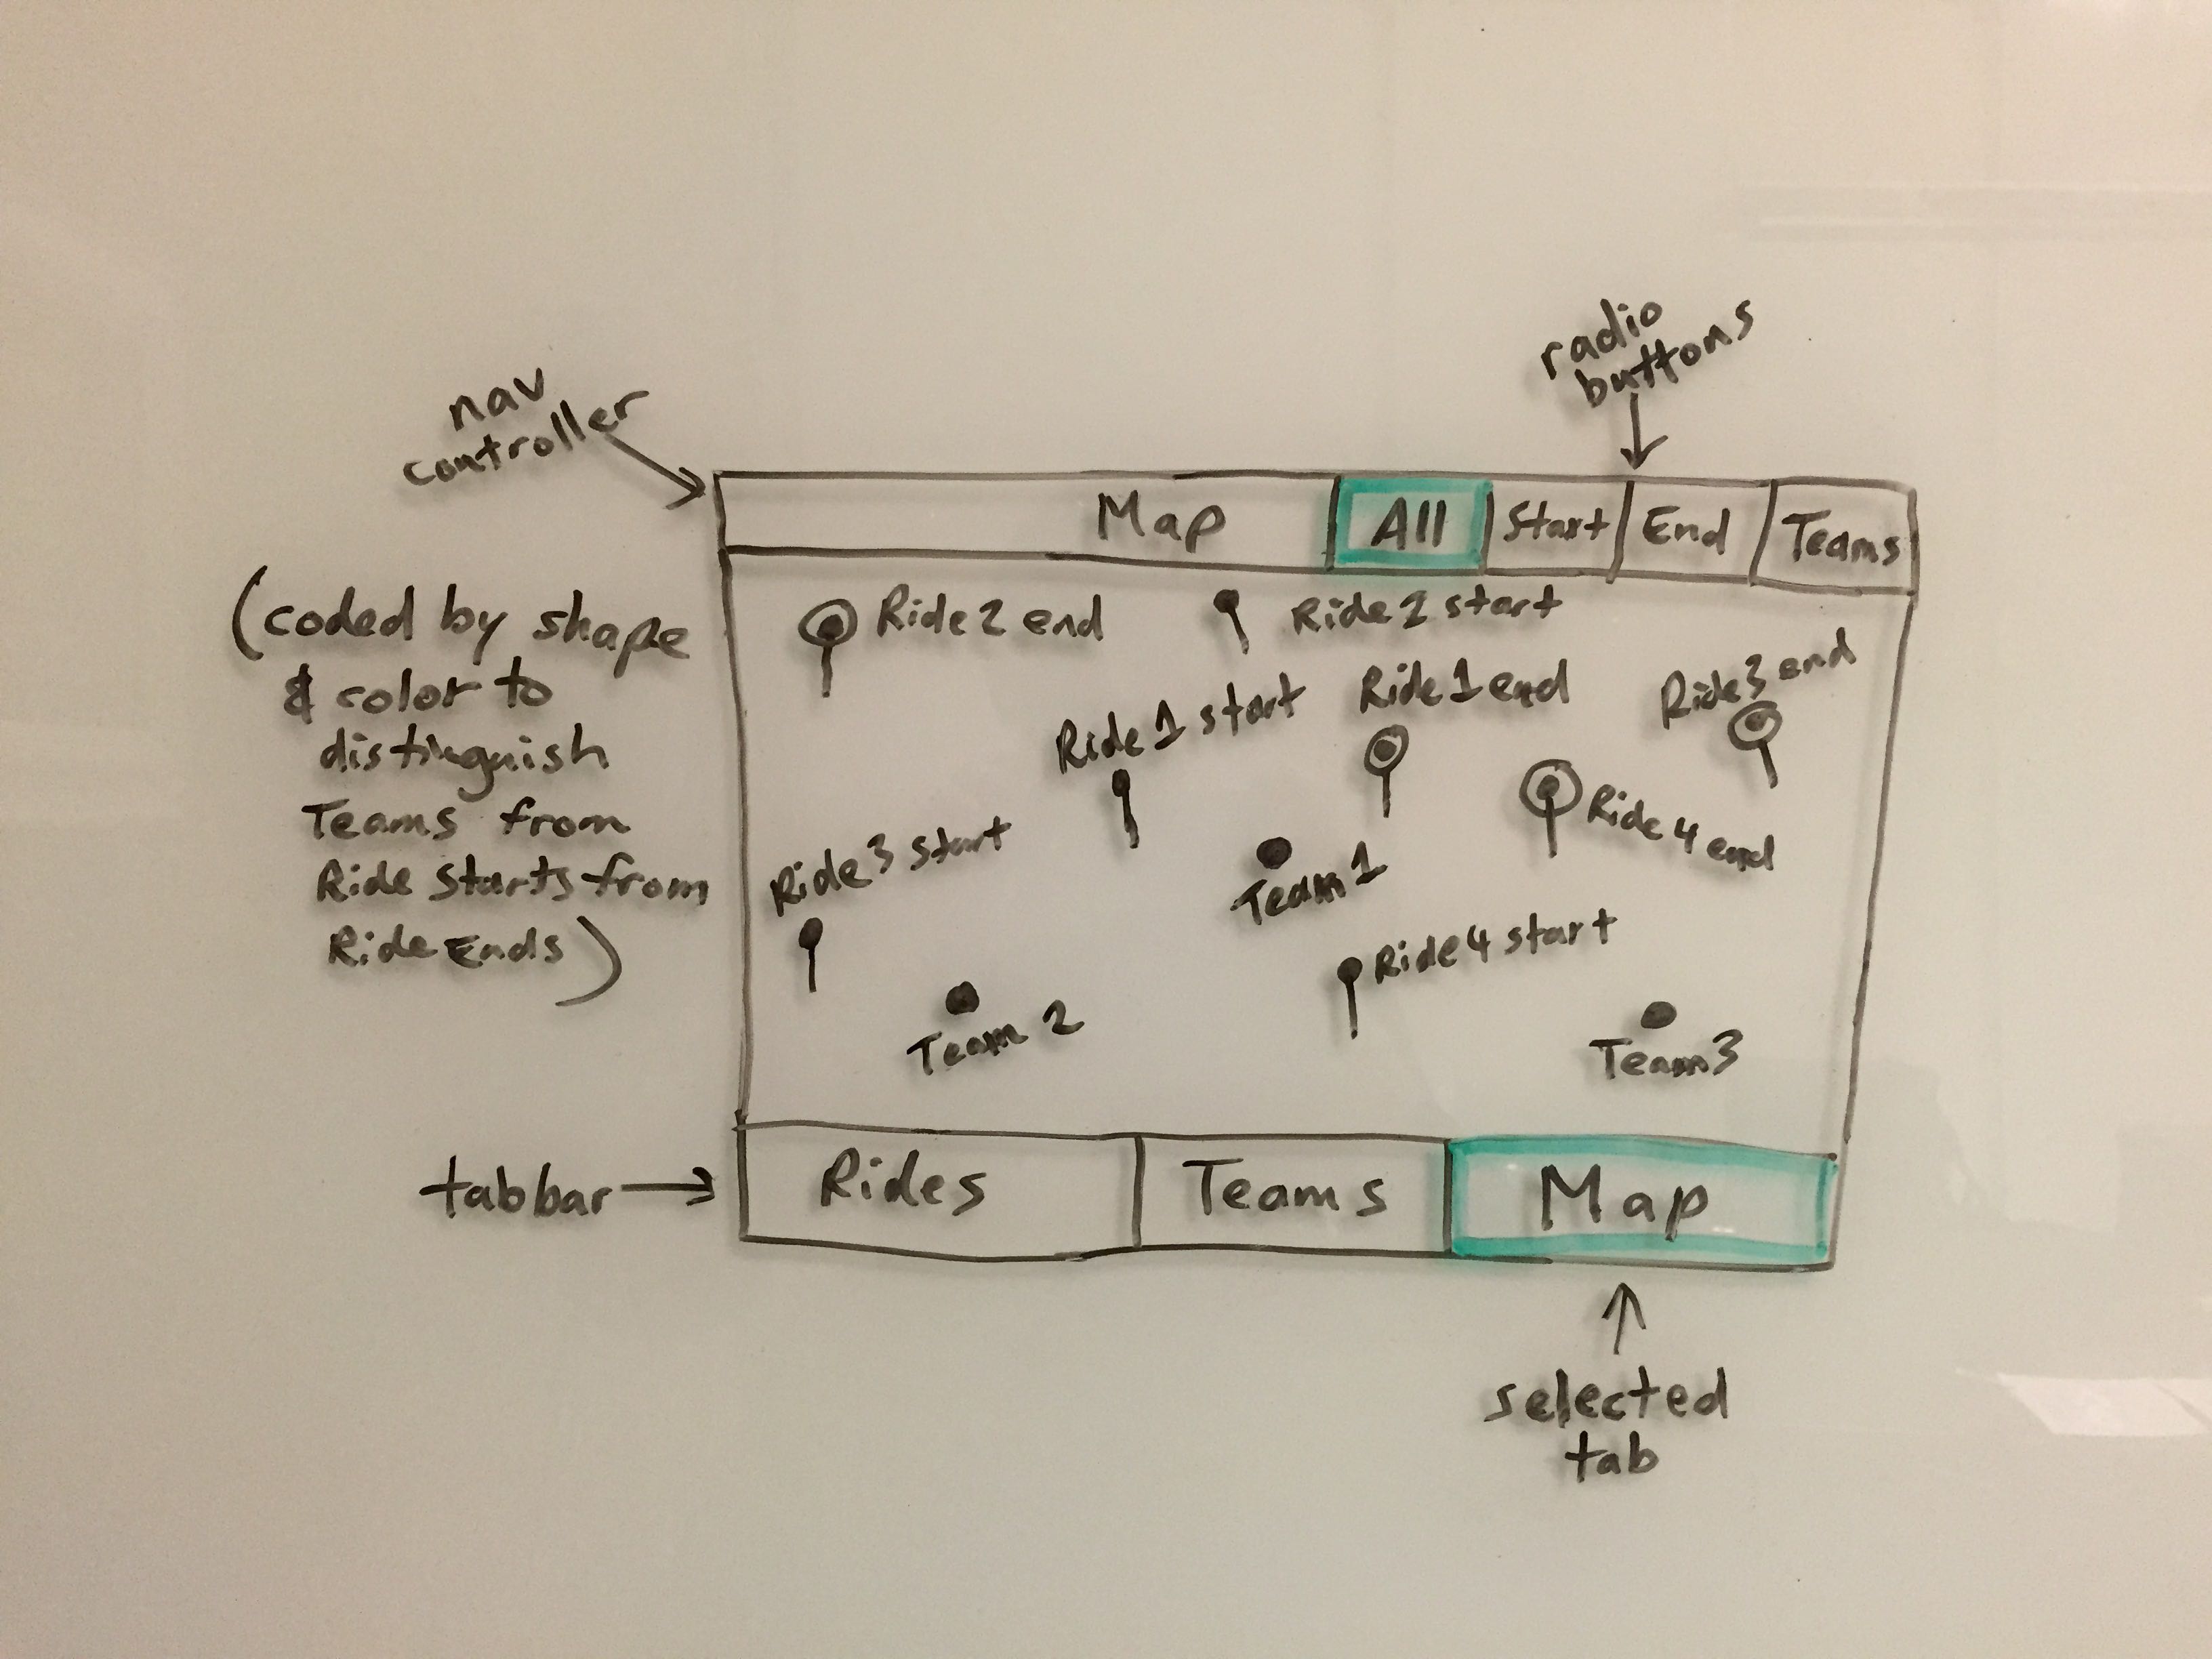 radio
buttons
nav
controller
Map
All
Start
End
Teams
(coded by shape
& color to
distinguish
Teams from
Ride starts from
Ride Ends)
Ride 2 end
Ride 2 start
Ride 1 start
Ride 1 end
Ride 3 end
Ride 4 end
Ride 3 start
Team 1
Ride 4 start
Team 2
Team 3
tab bar
Rides
Teams
Map
selected
tab